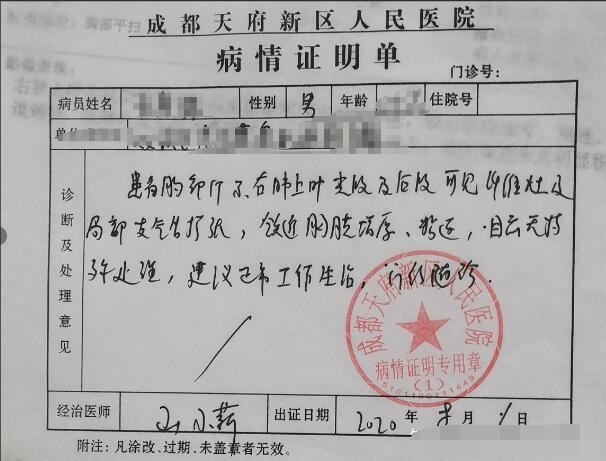 成都天府新区人民医院
病情证明单
门诊号：
病员姓名 性别 男 年龄 住院号
诊断及处理意见
患者胸部CT示右肺上叶尖段及后段可见纤维灶及
局部支气管扩张，邻近胸膜增厚、粘连，目前无特
殊处理，建议正常工作生活，门诊随诊.
成都天府新区人民医院
病情证明专用章
(1)
5101100211449
经治医师 出证日期 2020 年 月 日
附注：凡涂改、过期、未盖章者无效。